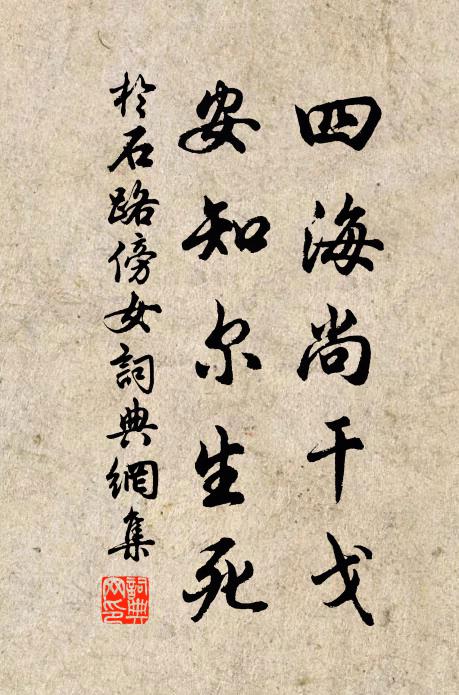 四海尚干戈
安知尔生死
於石路傍女詞典網集
詞典网印